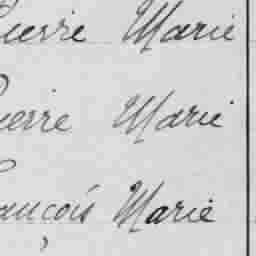 Pierre Marie
Pierre Marie
François Marie